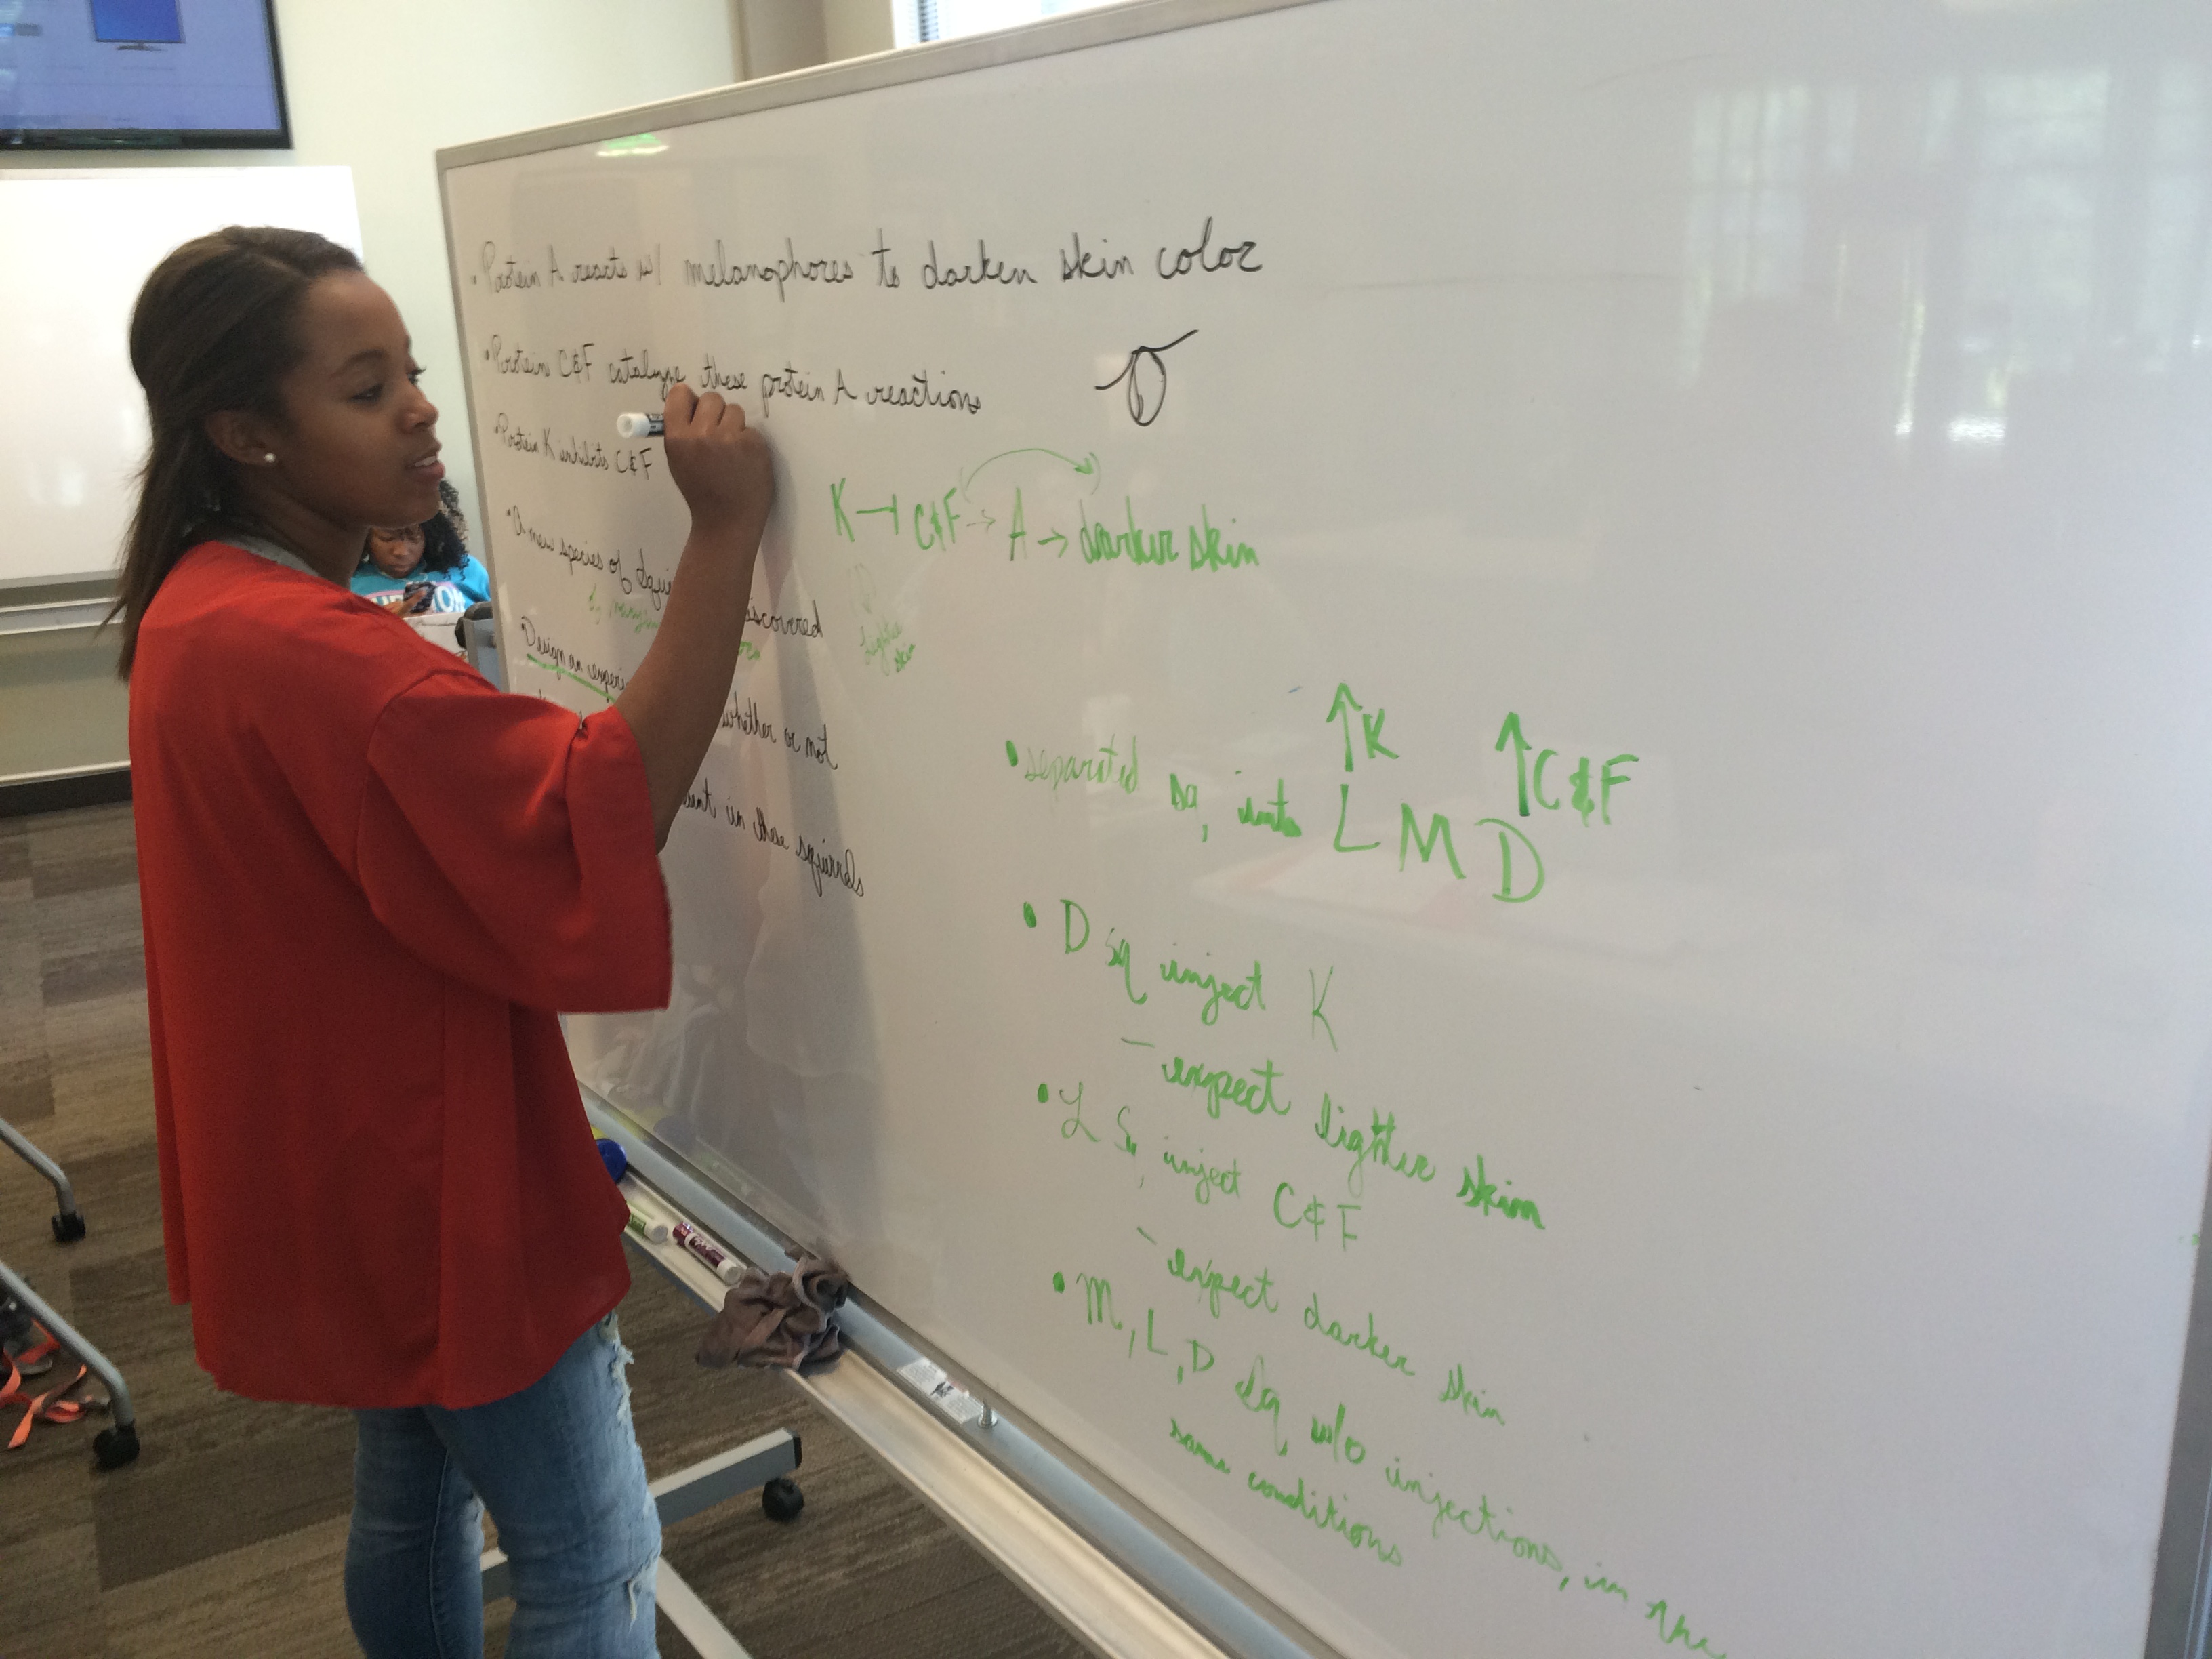 • Protein A reacts w/ melanophores to darken skin color
• Protein C&F catalyze these protein A reactions
• Protein K inhibits C&F
K ⊣ C&F → A → darker skin
• A new species of discovered
lighter
skin
• Design an
whether or not
in these squirrels
↑K ↑C&F
• separated sq. into L M D
• D sq inject K
– expect lighter skin
• L Sq. inject C&F
– expect darker skin
• M, L, D Sq. w/o injections, in the
same conditions